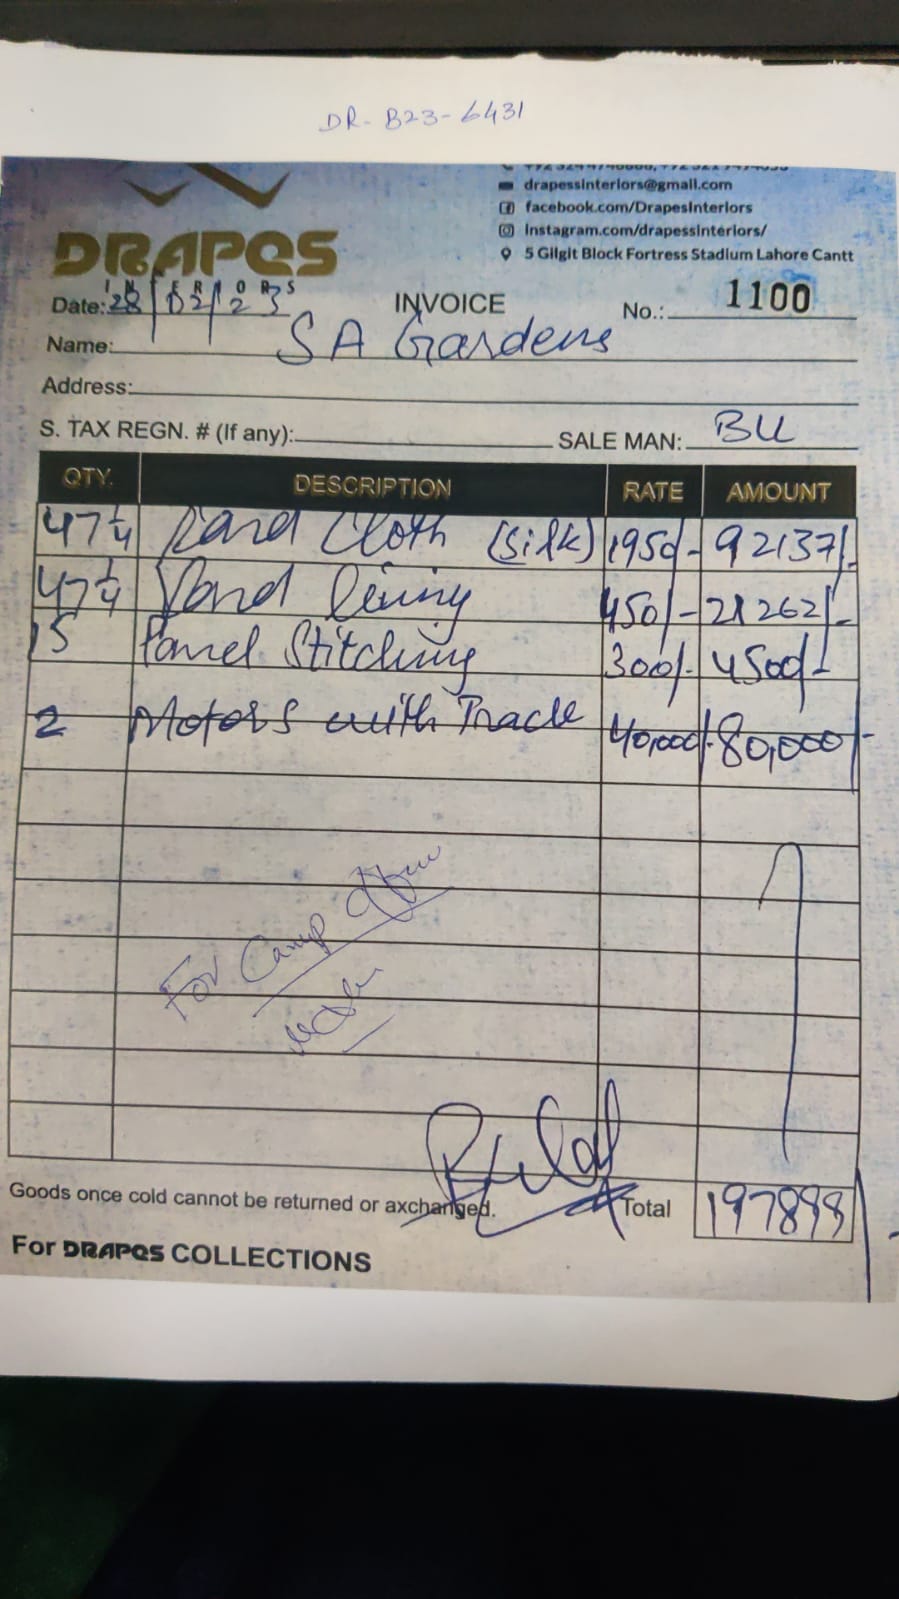 DR- B23-6431
+92 324 4748888, +92 321 9494055
drapessinteriors@gmail.com
facebook.com/DrapesInteriors
Instagram.com/drapessinteriors/
5 Gilgit Block Fortress Stadium Lahore Cantt
DRAPES
INTERIORS
Date: 28/02/23 INVOICE No.: 1100
Name: SA Gardens
Address:
S. TAX REGN. # (If any): SALE MAN: BU
QTY. DESCRIPTION RATE AMOUNT
47 1/4 Cloth (Silk) 1950/- 92137/-
47 1/4 lining 450/- 21262/-
15 Pannel Stitching 300/- 4500/-
2 Motors with Track 40,000/- 80,000/-
For Camp Office
Goods once cold cannot be returned or axchanged. Total 197898/-
For DRAPES COLLECTIONS